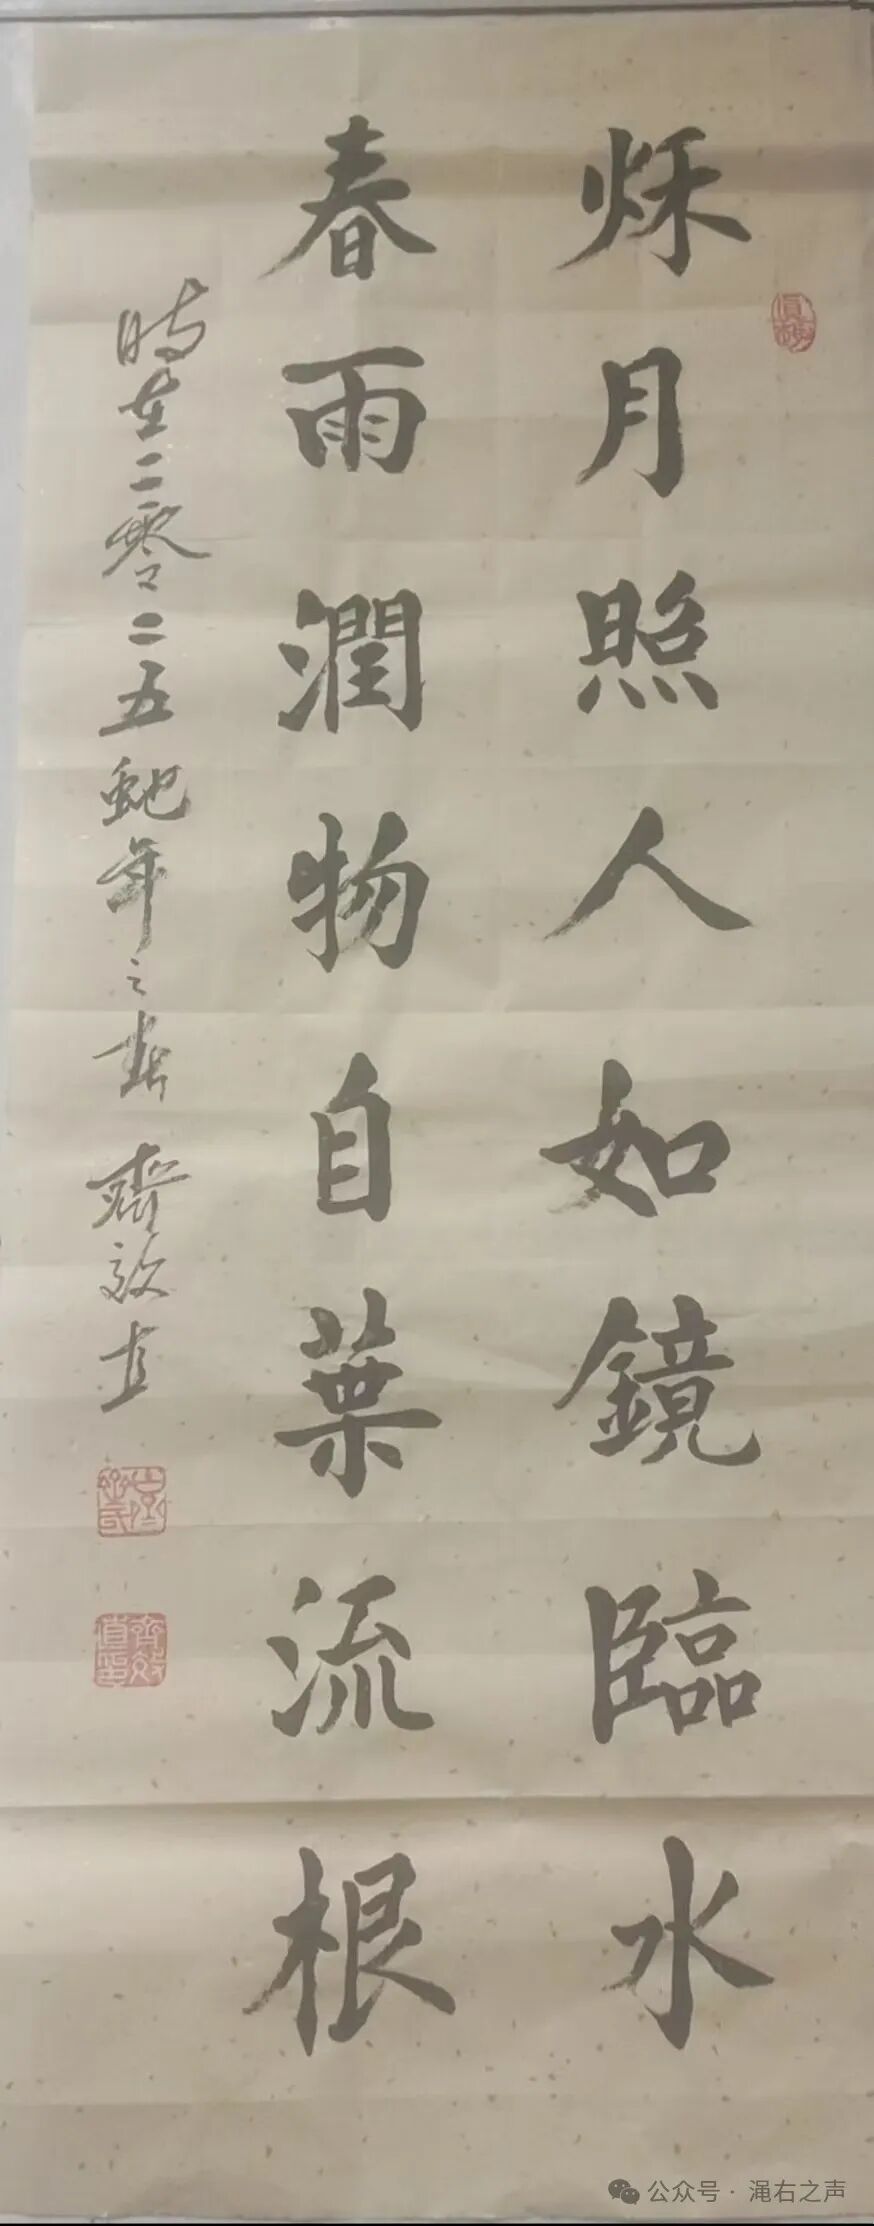 烁月照人如鏡臨水
春雨潤物自葉流根
時在二零二五蛇年之春 齊效直
公众号 · 渑右之声